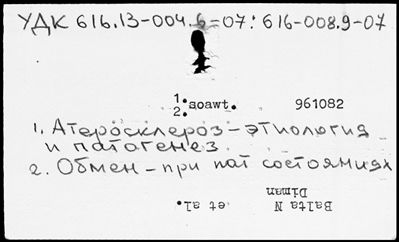 УДК 616.13-004.6-07: 616-008.9-07
1.soawt. 961082
2.
1. Атеросклероз-этиология
и патогенез
2. Обмен-при пат состояниях
Balta N
Diman
et al.